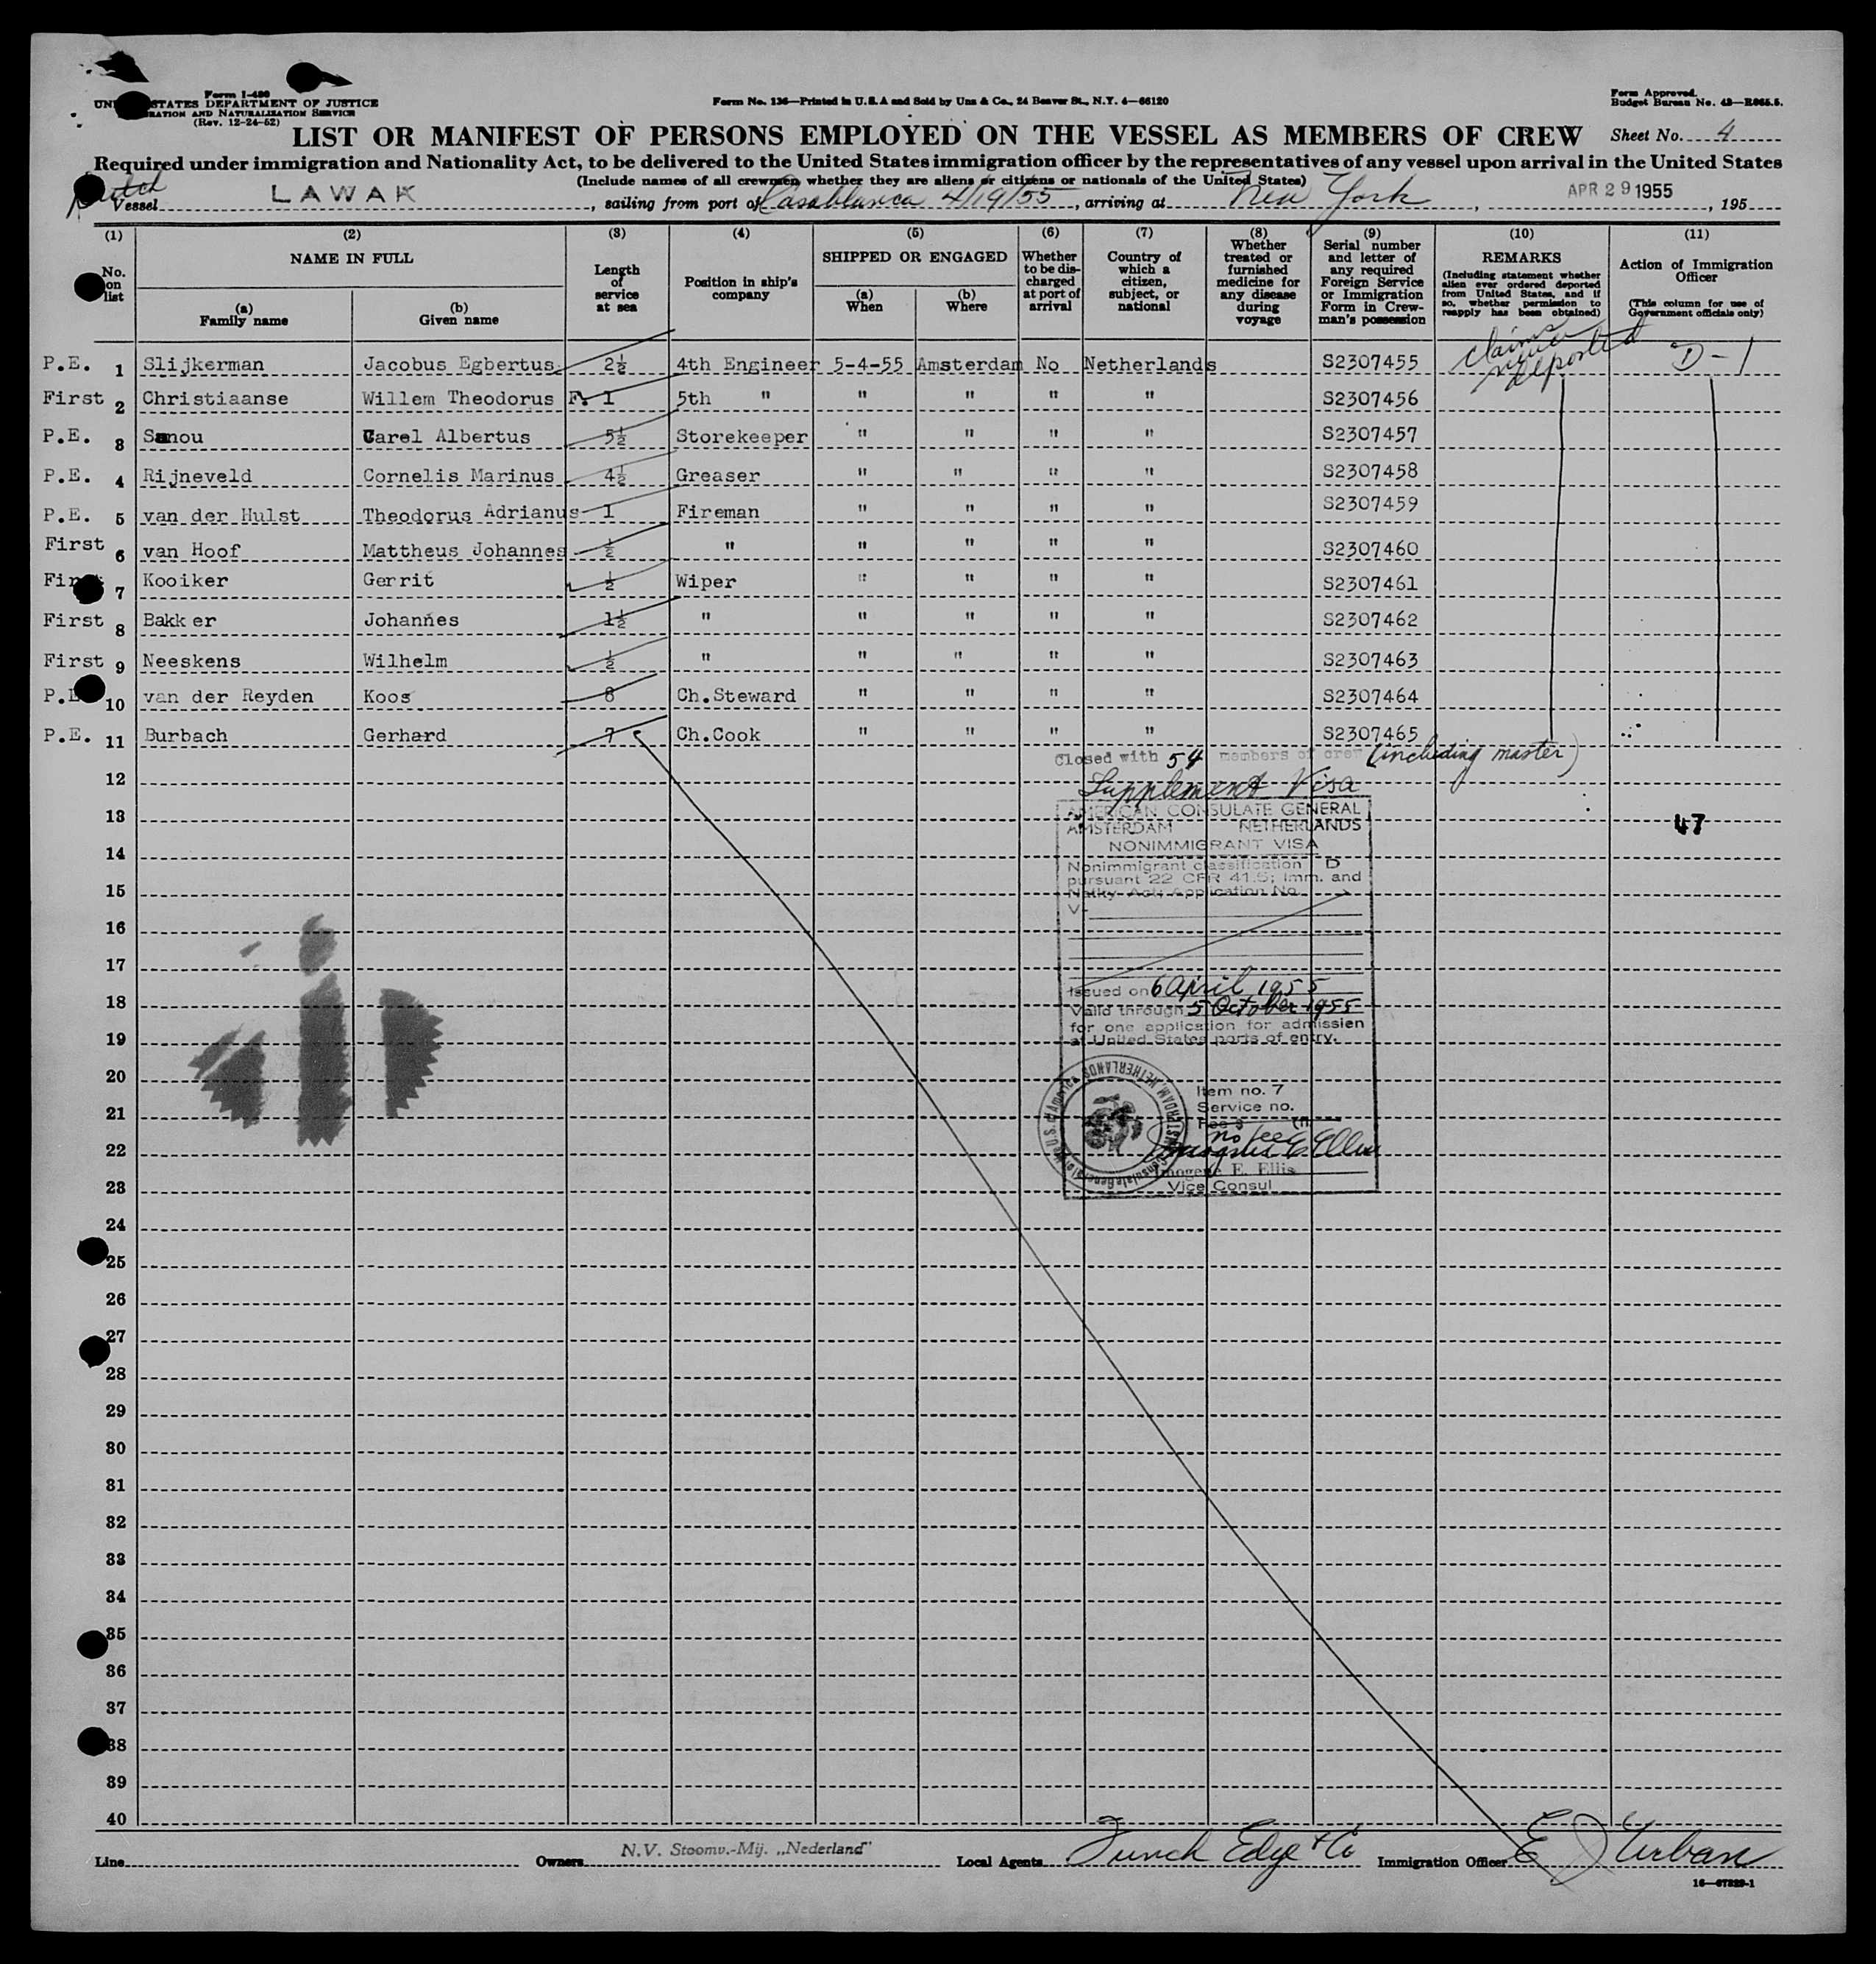 Form I-480
UNITED STATES DEPARTMENT OF JUSTICE
IMMIGRATION AND NATURALIZATION SERVICE
(Rev. 12-24-52)
Form No. 136—Printed in U.S.A and Sold by Unz & Co., 24 Beaver St., N.Y. 4—66120
Form Approved.
Budget Bureau No. 43—R065.5.
LIST OR MANIFEST OF PERSONS EMPLOYED ON THE VESSEL AS MEMBERS OF CREW
Sheet No. 4
Required under immigration and Nationality Act, to be delivered to the United States immigration officer by the representatives of any vessel upon arrival in the United States
(Include names of all crewmen whether they are aliens or citizens or nationals of the United States)
Dutch
Vessel LAWAK, sailing from port of Casablanca 4/19/55, arriving at New York, APR 29 1955, 195
(1) No. on list
(2) NAME IN FULL
(a) Family name
(b) Given name
(3) Length of service at sea
(4) Position in ship's company
(5) SHIPPED OR ENGAGED
(a) When
(b) Where
(6) Whether to be discharged at port of arrival
(7) Country of which a citizen, subject, or national
(8) Whether treated or furnished medicine for any disease during voyage
(9) Serial number and letter of any required Foreign Service or Immigration Form in Crewman's possession
(10) REMARKS
(Including statement whether alien ever ordered deported from United States, and if so, whether permission to reapply has been obtained)
(11) Action of Immigration Officer
(This column for use of Government officials only)
P.E. 1 Slijkerman Jacobus Egbertus 2½ 4th Engineer 5-4-55 Amsterdam No Netherlands S2307455 claims never deported D-1
First 2 Christiaanse Willem Theodorus F. 1 5th " " " " " S2307456
P.E. 3 Sanou Carel Albertus 5½ Storekeeper " " " " S2307457
P.E. 4 Rijneveld Cornelis Marinus 4½ Greaser " " " " S2307458
P.E. 5 van der Hulst Theodorus Adrianus 1 Fireman " " " " S2307459
First 6 van Hoof Mattheus Johannes ½ " " " " " S2307460
First 7 Kooiker Gerrit ½ Wiper " " " " S2307461
First 8 Bakker Johannes 1½ " " " " " S2307462
First 9 Neeskens Wilhelm ½ " " " " " S2307463
P.E. 10 van der Reyden Koos 8 Ch.Steward " " " " S2307464
P.E. 11 Burbach Gerhard 7 Ch.Cook " " " " S2307465
Closed with 54 members of crew (including master)
12
Supplement Visa
AMERICAN CONSULATE GENERAL
13
47
AMSTERDAM NETHERLANDS
NONIMMIGRANT VISA
14
Nonimmigrant classification D
pursuant 22 CFR 41.5; Imm. and
15
Natlty. Act; Application No.
V-
16
17
Issued on 6 April 1955
18
Valid through 5 October 1955
for one application for admission
19
at United States ports of entry.
20
Item no. 7
21
Service no.
Fee $
no fee
22
Imogene E. Ellis
Imogene E. Ellis
23
Vice Consul
24
25
26
27
28
29
30
31
32
33
34
35
36
37
38
39
40
Line
Owners N.V. Stoomv.-Mij. „Nederland"
Local Agents Funch Edye & Co
Immigration Officer E J Urban
16—67329-1